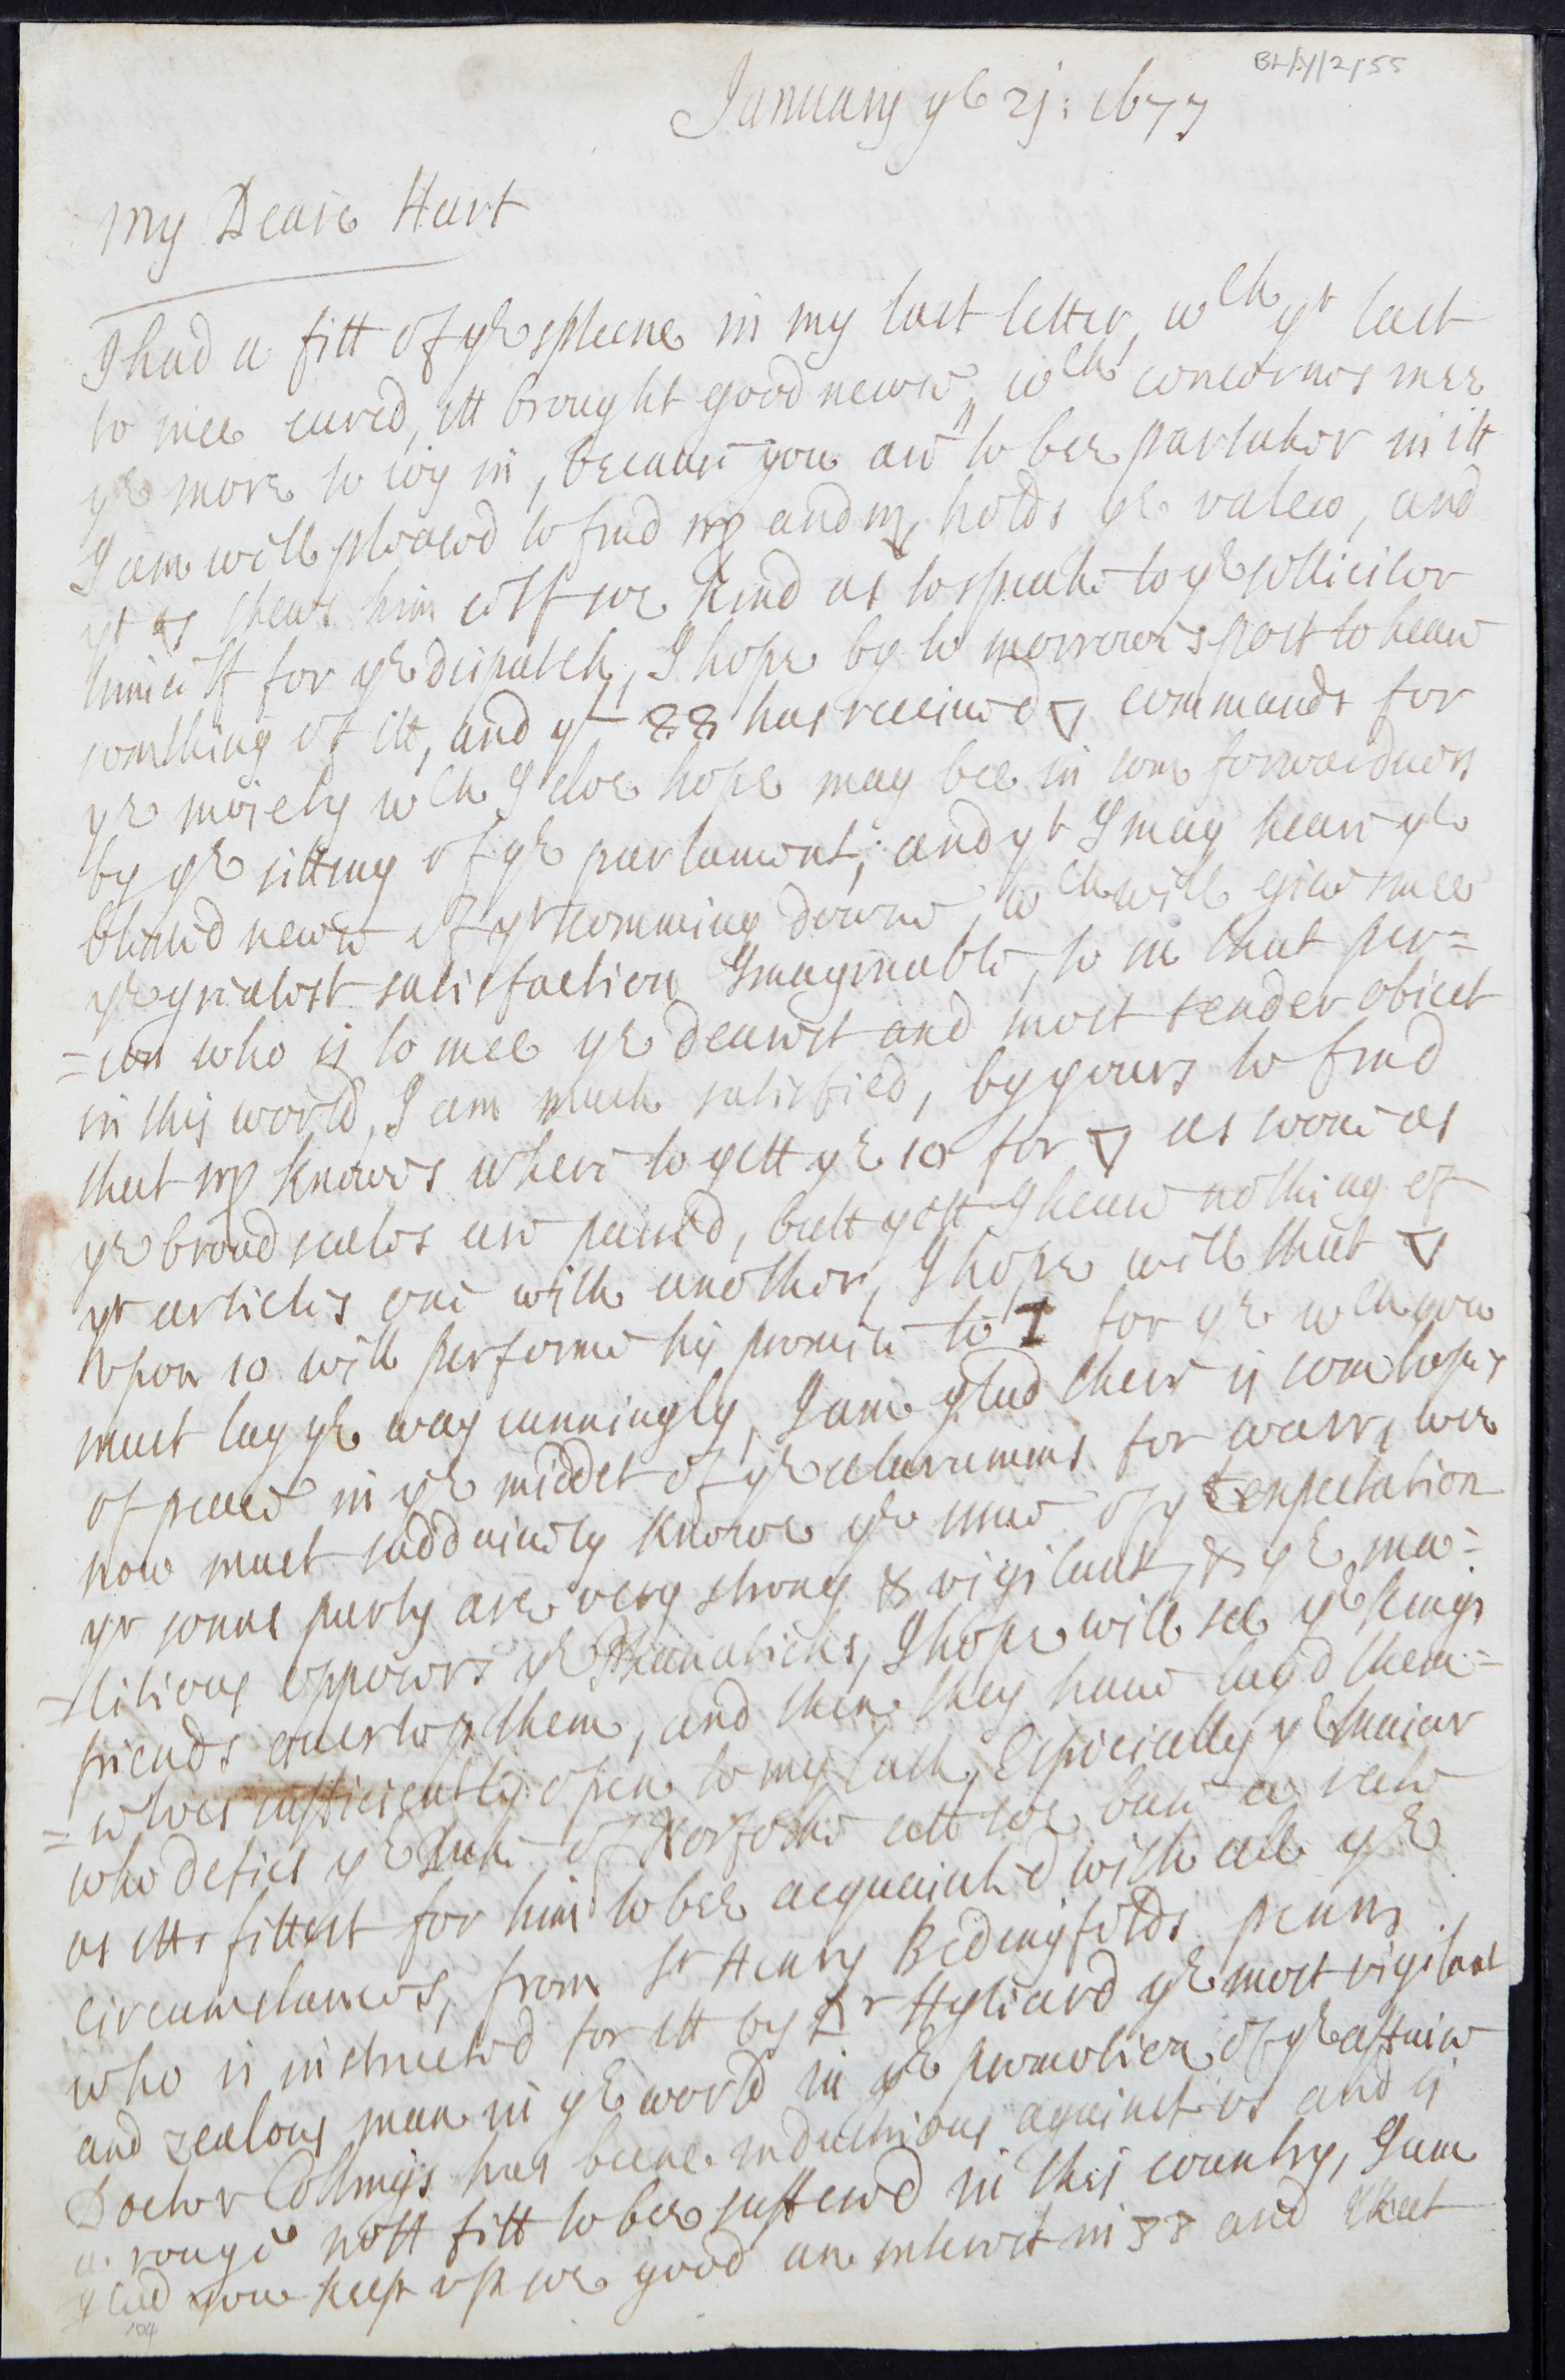 BL/Y/2/55
January ye 2j: 1677
My Deare Hart
I had a fitt of ye spleene in my last letter, wch yr last
to mee cured, itt brought good newse, wch concernes mee
ye more to ioy in, because you are to bee partaker in itt
I am well pleased to find and holds ye valew, and
yt shews him self soe kind as to speake to ye sollicitor
himself for ye dispatch, I hope by to morrowes post to heare
somthing of itt, and yt 88 has receiued ▽ commands for
ye moiety wch I doe hope may bee in some forwardness
by ye sitting of ye parlament, and yt I may heare ye
blessed newse of yr comming downe, wch will giue mee
ye greatest satisfaction Imaginable, to see that per=
=son who is to mee ye dearest and most tender obiect
in this world, I am much satisfied, by yours to find
that knowes where to gett ye 10 for ▽ as soone as
ye broad seales are passed, butt yett I heare nothing of
yr articles one with another, I hope will that ▽
vpon 10 will performe his promise to I for ye wch you
must lay ye way cunningly, I am glad there is some hopes
of peace in ye middst of ye alarumms for warr, wee
now must suddainely knowe ye issue of yt expectation
yr sonns party are very strong & vigilant, & ye ma=
=litious opposers ye phanaticks, I hope will see ye kings
friends ouertop them, and then they haue layd them=
=selues sufficiently open to my lash, Especially ye maior
who defies ye Duke of Norfolke att soe base a rate
as itts fittest for him to bee acquainted with all ye
circumstances, from Sr Henry Bedingfelds penn,
who is instructed for itt by Mr Hyliard ye most vigilant
and zealous man in ye world in ye promotion of ye affaire
Doctor Collings has beene industrious against vs and is
a rouge nott fitt to bee suffered in this country, I am
glad you keep vp soe good an interest in 88 and that
104